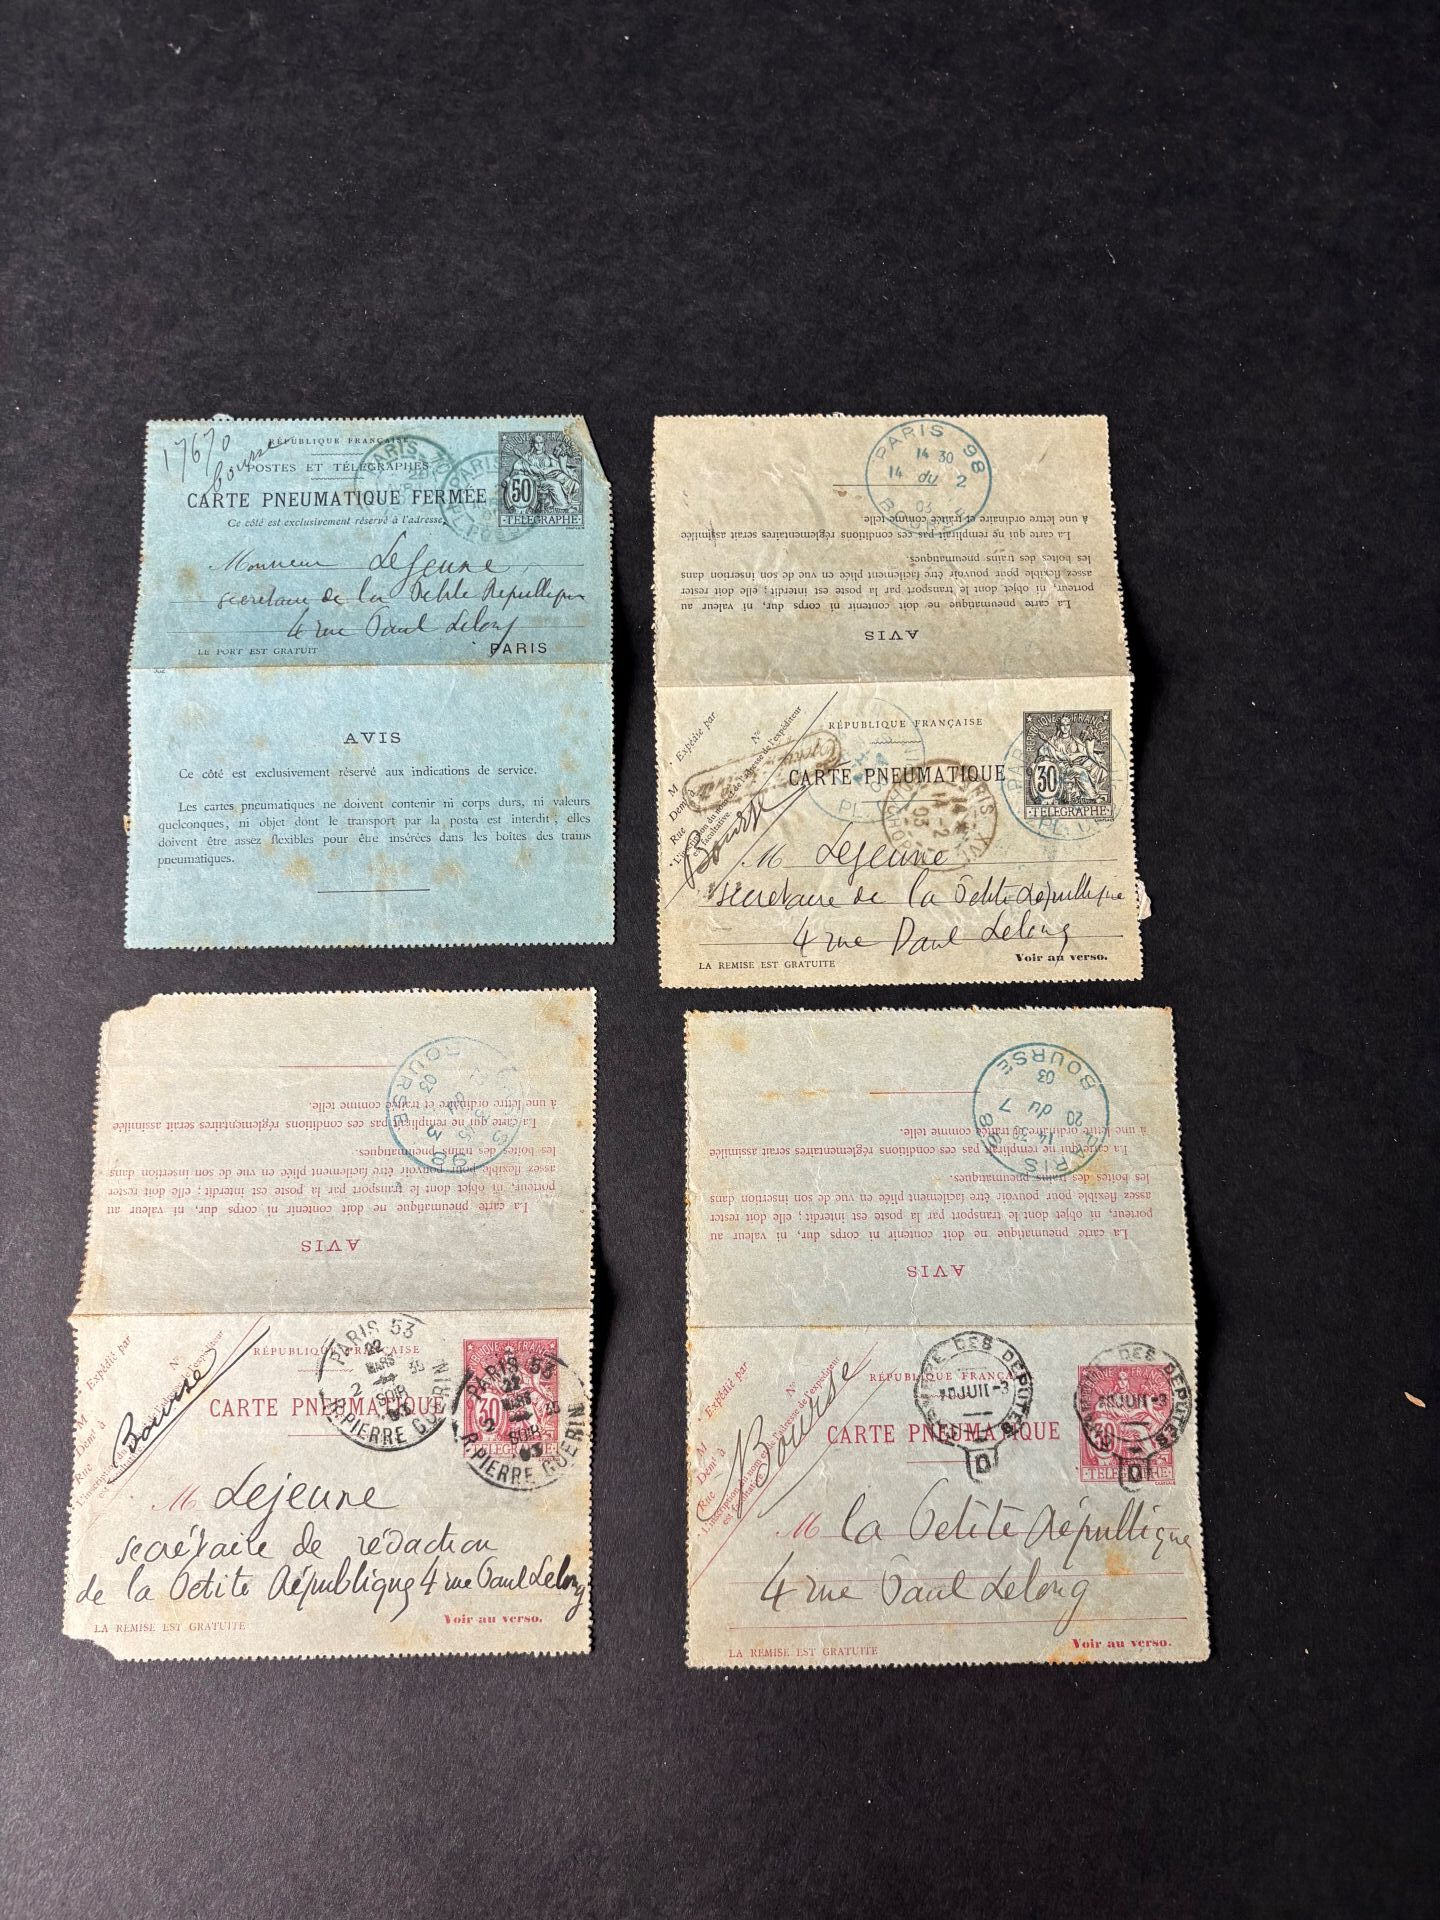 17670
Bourse
RÉPUBLIQUE FRANÇAISE
POSTES ET TÉLÉGRAPHES
CARTE PNEUMATIQUE FERMÉE
Ce côté est exclusivement réservé à l'adresse.
50
TÉLÉGRAPHE
Monsieur Lejeune,
secretaire de la Petite République
4 rue Paul Lelong
LE PORT EST GRATUIT
PARIS
AVIS
Ce côté est exclusivement réservé aux indications de service.
Les cartes pneumatiques ne doivent contenir ni corps durs, ni valeurs
quelconques, ni objet dont le transport par la poste est interdit ; elles
doivent être assez flexibles pour être insérées dans les boîtes des trains
pneumatiques.
PARIS 98
14 30
14 du 2
03
BOURSE
AVIS
La carte pneumatique ne doit contenir ni corps dur, ni valeur au
porteur, ni objet dont le transport par la poste est interdit ; elle doit rester
assez flexible pour pouvoir être facilement pliée en vue de son insertion dans
les boîtes des trains pneumatiques.
La carte qui ne remplirait pas ces conditions réglementaires serait assimilée
à une lettre ordinaire et traitée comme telle.
Expédié par
M
Demt à
Rue N°
L'inscription du nom et de l'adresse de l'expéditeur
est facultative
Bourse
RÉPUBLIQUE FRANÇAISE
CARTE PNEUMATIQUE
30
TÉLÉGRAPHE
14 -2
03
M Lejeune
secretaire de la Petite République
4 rue Paul Lelong
LA REMISE EST GRATUITE
Voir au verso.
BOURSE
03
AVIS
La carte pneumatique ne doit contenir ni corps dur, ni valeur au
porteur, ni objet dont le transport par la poste est interdit ; elle doit rester
assez flexible pour pouvoir être facilement pliée en vue de son insertion dans
les boîtes des trains pneumatiques.
La carte qui ne remplirait pas ces conditions réglementaires serait assimilée
à une lettre ordinaire et traitée comme telle.
Expédié par
M
Demt à
Rue N°
Bourse
RÉPUBLIQUE FRANÇAISE
CARTE PNEUMATIQUE
30
TÉLÉGRAPHE
PARIS 53
22
MARS
2 30
SOIR
R. PIERRE GUERIN
PARIS 53
22
MARS
2 30
SOIR
03
R. PIERRE GUERIN
M Lejeune
secrétaire de rédaction
de la Petite République 4 rue Paul Lelong
LA REMISE EST GRATUITE
Voir au verso.
PARIS 98
14 30
20 du 7
03
BOURSE
AVIS
La carte pneumatique ne doit contenir ni corps dur, ni valeur au
porteur, ni objet dont le transport par la poste est interdit ; elle doit rester
assez flexible pour pouvoir être facilement pliée en vue de son insertion dans
les boîtes des trains pneumatiques.
La carte qui ne remplirait pas ces conditions réglementaires serait assimilée
à une lettre ordinaire et traitée comme telle.
Expédié par
M
Demt à
Rue N°
L'inscription du nom et de l'adresse de l'expéditeur
est facultative
Bourse
RÉPUBLIQUE FRANÇAISE
CARTE PNEUMATIQUE
TÉLÉGRAPHE
CHAMBRE DES DEPUTES
20 JUIL -3
D
DES DEPUTES
20 JUIL -3
D
M la Petite République
4 rue Paul Lelong
LA REMISE EST GRATUITE
Voir au verso.